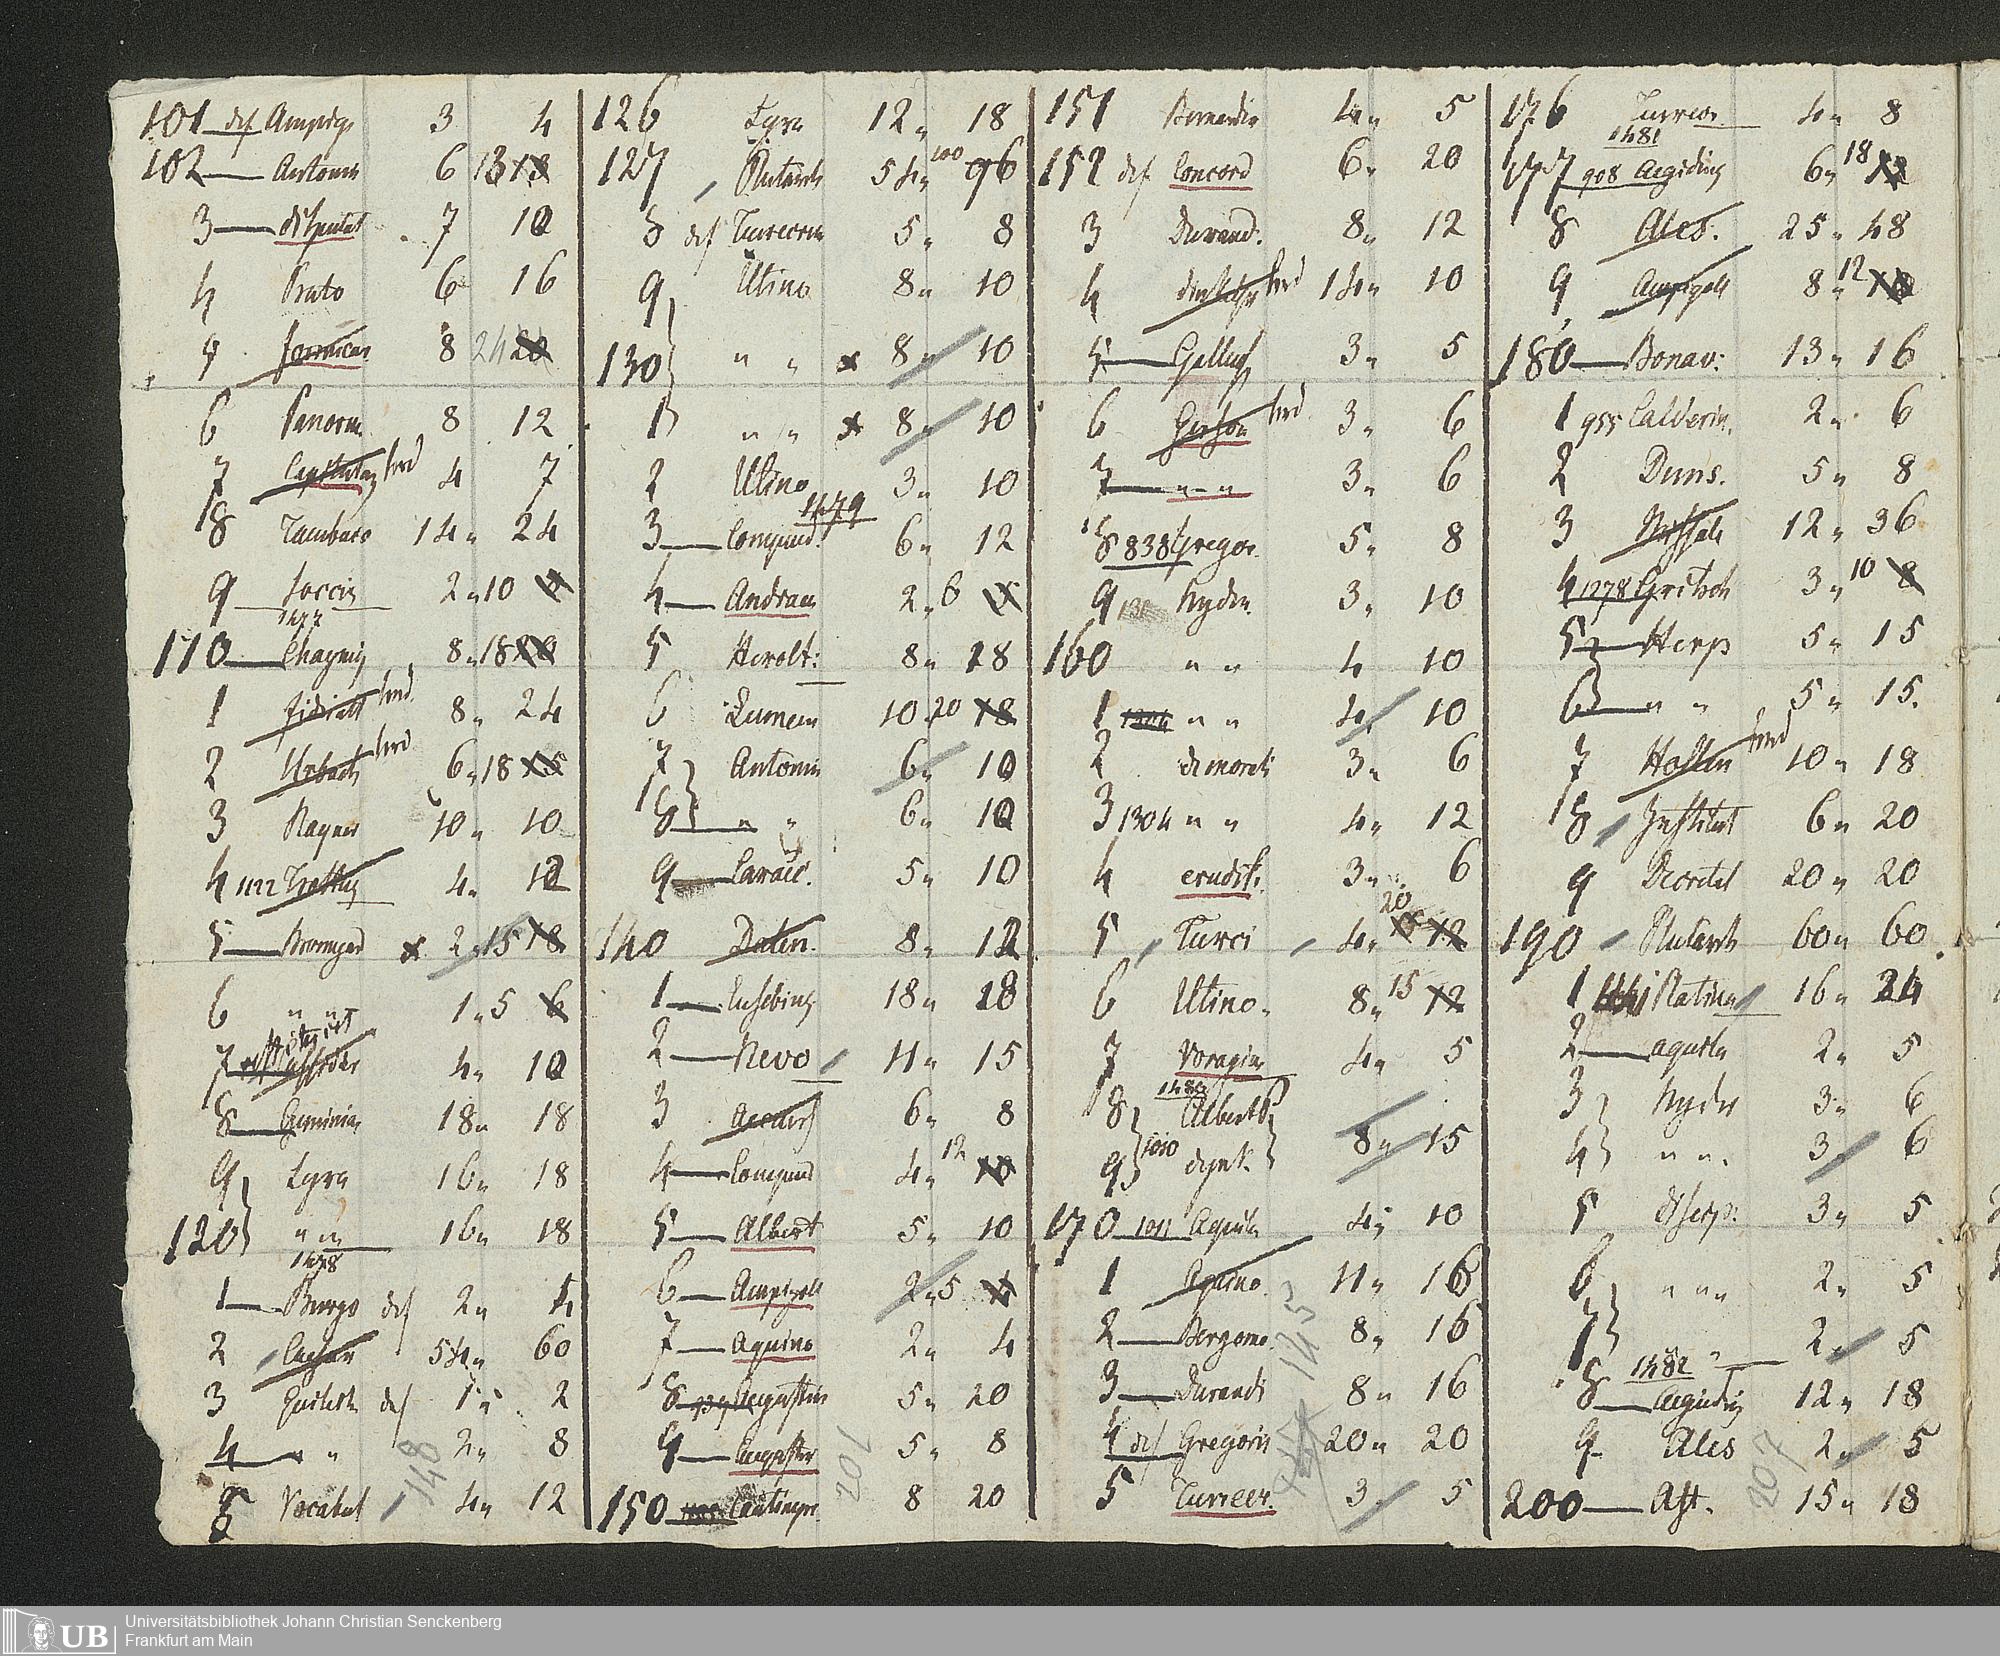 101 def Ampigo 3 4
102 Antonin 6 13 18
3 disputat 7 10
4 Prato 6 16
5 formicar 8 24 20
6 Panorm. 8 12
7 Capitular hrd 4 7
8 Tambaco 14 " 24
9 Soccis 2 " 10
1477
110 Chaymis 8 " 18 20
1 hrd 8 " 24
2 Urbach hrd 6 " 18 15
3 Rayner 10 " 10
4 1122 4 " 12
5 Bromyard x 2 " 15 18
6 " " 1 " 5 6
7 4 " 10
8 Geminian 18 " 18
9 Lyra 16 " 18
120 " " 16 " 18
1478
1 Burgo def 2 " 4
2 Caesar 54 " 60
3 def 1 " 2
4 " " 2 " 8
5 Vocabul 4 " 12
148
126 Lyra 12 " 18
127 Plutarch 54 " 100 96
8 def Turrecrem 5 " 8
9 Utino 8 " 10
130 " " x 8 " 10
1 " " x 8 " 10
2 Utino 3 " 10
1479
3 Compend. 6 " 12
4 Andraeae 2 " 6 5
5 Herolt: 8 " 18
6 Lumen 10 " 20 18
7 Antonin 6 " 10
8 " " 6 " 10
9 Caracc. 5 " 10
140 Daten. 8 " 12
1 Eusebius 18 " 18
2 Nevo 11 " 15
3 6 " 8
4 Compend 4 " 12 10
5 Albert 5 " 10
6 Ampigoll 2 " 5 4
7 Aquino 2 " 4
8 939 Augustin 5 " 20
9 Augustin 5 " 8
150 Cantimpr 8 20
201
151 Bernardin 4 " 5
152 def Concord 6 " 20
3 Durand. 8 " 12
4 hrd 14 " 10
5 Gallus 3 " 5
6 Gerson hrd 3 " 6
7 " " " 3 " 6
8 838 Gregor. 5 " 8
9 Nyder. 3 " 10
160 " " 4 10
1 1304 " " 4 " 10
2 de morali 3 " 6
3 1304 " " 4 " 12
4 erudit. 3 " 6
5 Turci 4 " 20 15 12
6 Utino. 8 " 15 12
7 Voragine 4 " 5
1480
8 Albert P.
9 1010 8 " 15
170 1011 Aquila 4 " 10
1 Aquino. 11 " 16
2 Bergomo. 8 " 16
3 Durandi 8 " 16
4 def Gregorii 20 " 20
5 Turrecr. 3 " 5
125
176 Turrecr. 4 " 8
1481
177 908 Aegidius 6 " 18 12
8 Ales. 25 " 48
9 Ampigoll 8 " 12 10
180 Bonav: 13 " 16
1 955 Calderin. 2 " 6
2 Duns. 5 " 8
3 Missale 12 " 36
4 1278 Gritsch 3 " 10 8
5 Herp 5 " 15
6 " " 5 " 15.
7 Holten hrd 10 " 18
8 Institut 6 " 20
9 Decretal 20 " 20
190 Plutarch 60 " 60
1 Platina 16 " 24
2 aquila 2 " 5
3 Nyder 3 " 6
4 " " 3 " 6
5 discip: 3 " 5
6 " " " 2 " 5
7 " 2 " 5
1482
8 Aegidius 12 " 18
9 Ales 2 " 5
200 Ast. 15 " 18
207
UB
Universitätsbibliothek Johann Christian Senckenberg
Frankfurt am Main